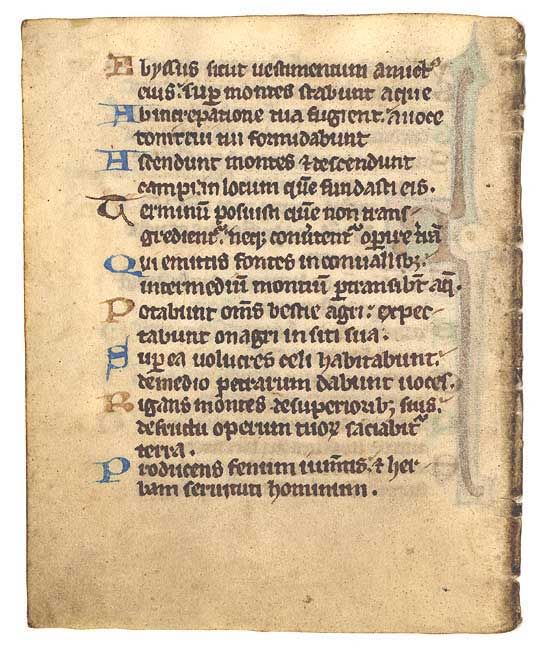 Abyssus sicut vestimentum amict9
eius: sup montes stabunt aque
Ab increpatione tua fugient: a uoce
tonitrui tui formidabunt
Ascendunt montes ⁊ descendunt
campi: in locum quē fundasti eis.
Terminū posuisti quē non trans
gredient᷑: neqꝫ conu̾tent᷑ opire t̾rā
Qui emittis fontes in conuallibꝫ:
inter medium montiū ꝑtransibt̄ aq̄.
Potabunt om̄s bestie agri: expec-
tabunt onagri in siti sua.
Sup ea uolucres celi habitabunt:
de medio petrarum dabunt uoces.
Rigans montes de superioribꝫ suis:
de fructu operum tuoꝝ saciabit᷑
terra.
Producens fenum ium̄tis: ⁊ her
bam seruituti hominum.